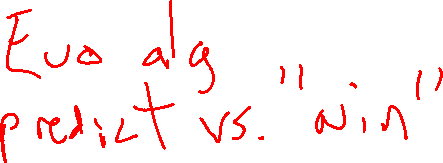 Evo alg
predict vs. "win"